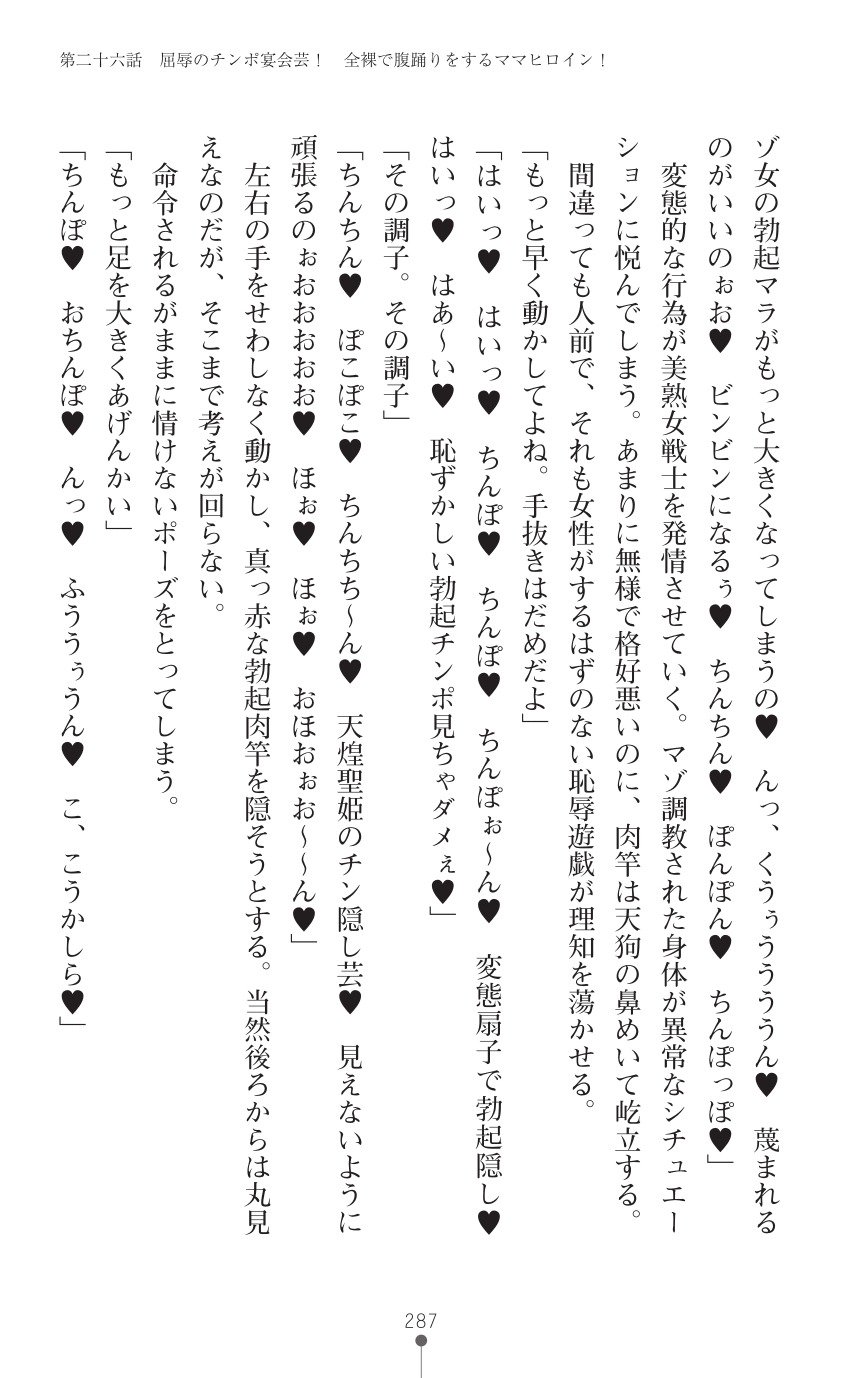 第二十六話　屈辱のチンポ宴会芸！　全裸で腹踊りをするママヒロイン！
ゾ女の勃起マラがもっと大きくなってしまうの♥　んっ、くうぅうううん♥　蔑まれる
のがいいのぉお♥　ビンビンになるぅ♥　ちんちん♥　ぽんぽん♥　ちんぽっぽ♥」
　変態的な行為が美熟女戦士を発情させていく。マゾ調教された身体が異常なシチュエー
ションに悦んでしまう。あまりに無様で格好悪いのに、肉竿は天狗の鼻めいて屹立する。
　間違っても人前で、それも女性がするはずのない恥辱遊戯が理知を蕩かせる。
「もっと早く動かしてよね。手抜きはだめだよ」
「はいっ♥　はいっ♥　ちんぽ♥　ちんぽ♥　ちんぽぉ～ん♥　変態扇子で勃起隠し♥
はいっ♥　はあ～い♥　恥ずかしい勃起チンポ見ちゃダメぇ♥」
「その調子。その調子」
「ちんちん♥　ぽこぽこ♥　ちんちち～ん♥　天煌聖姫のチン隠し芸♥　見えないように
頑張るのぉおおおおお♥　ほぉ♥　ほぉ♥　おほおぉお～～ん♥」
　左右の手をせわしなく動かし、真っ赤な勃起肉竿を隠そうとする。当然後ろからは丸見
えなのだが、そこまで考えが回らない。
　命令されるがままに情けないポーズをとってしまう。
「もっと足を大きくあげんかい」
「ちんぽ♥　おちんぽ♥　んっ♥　ふううぅうん♥　こ、こうかしら♥」
287